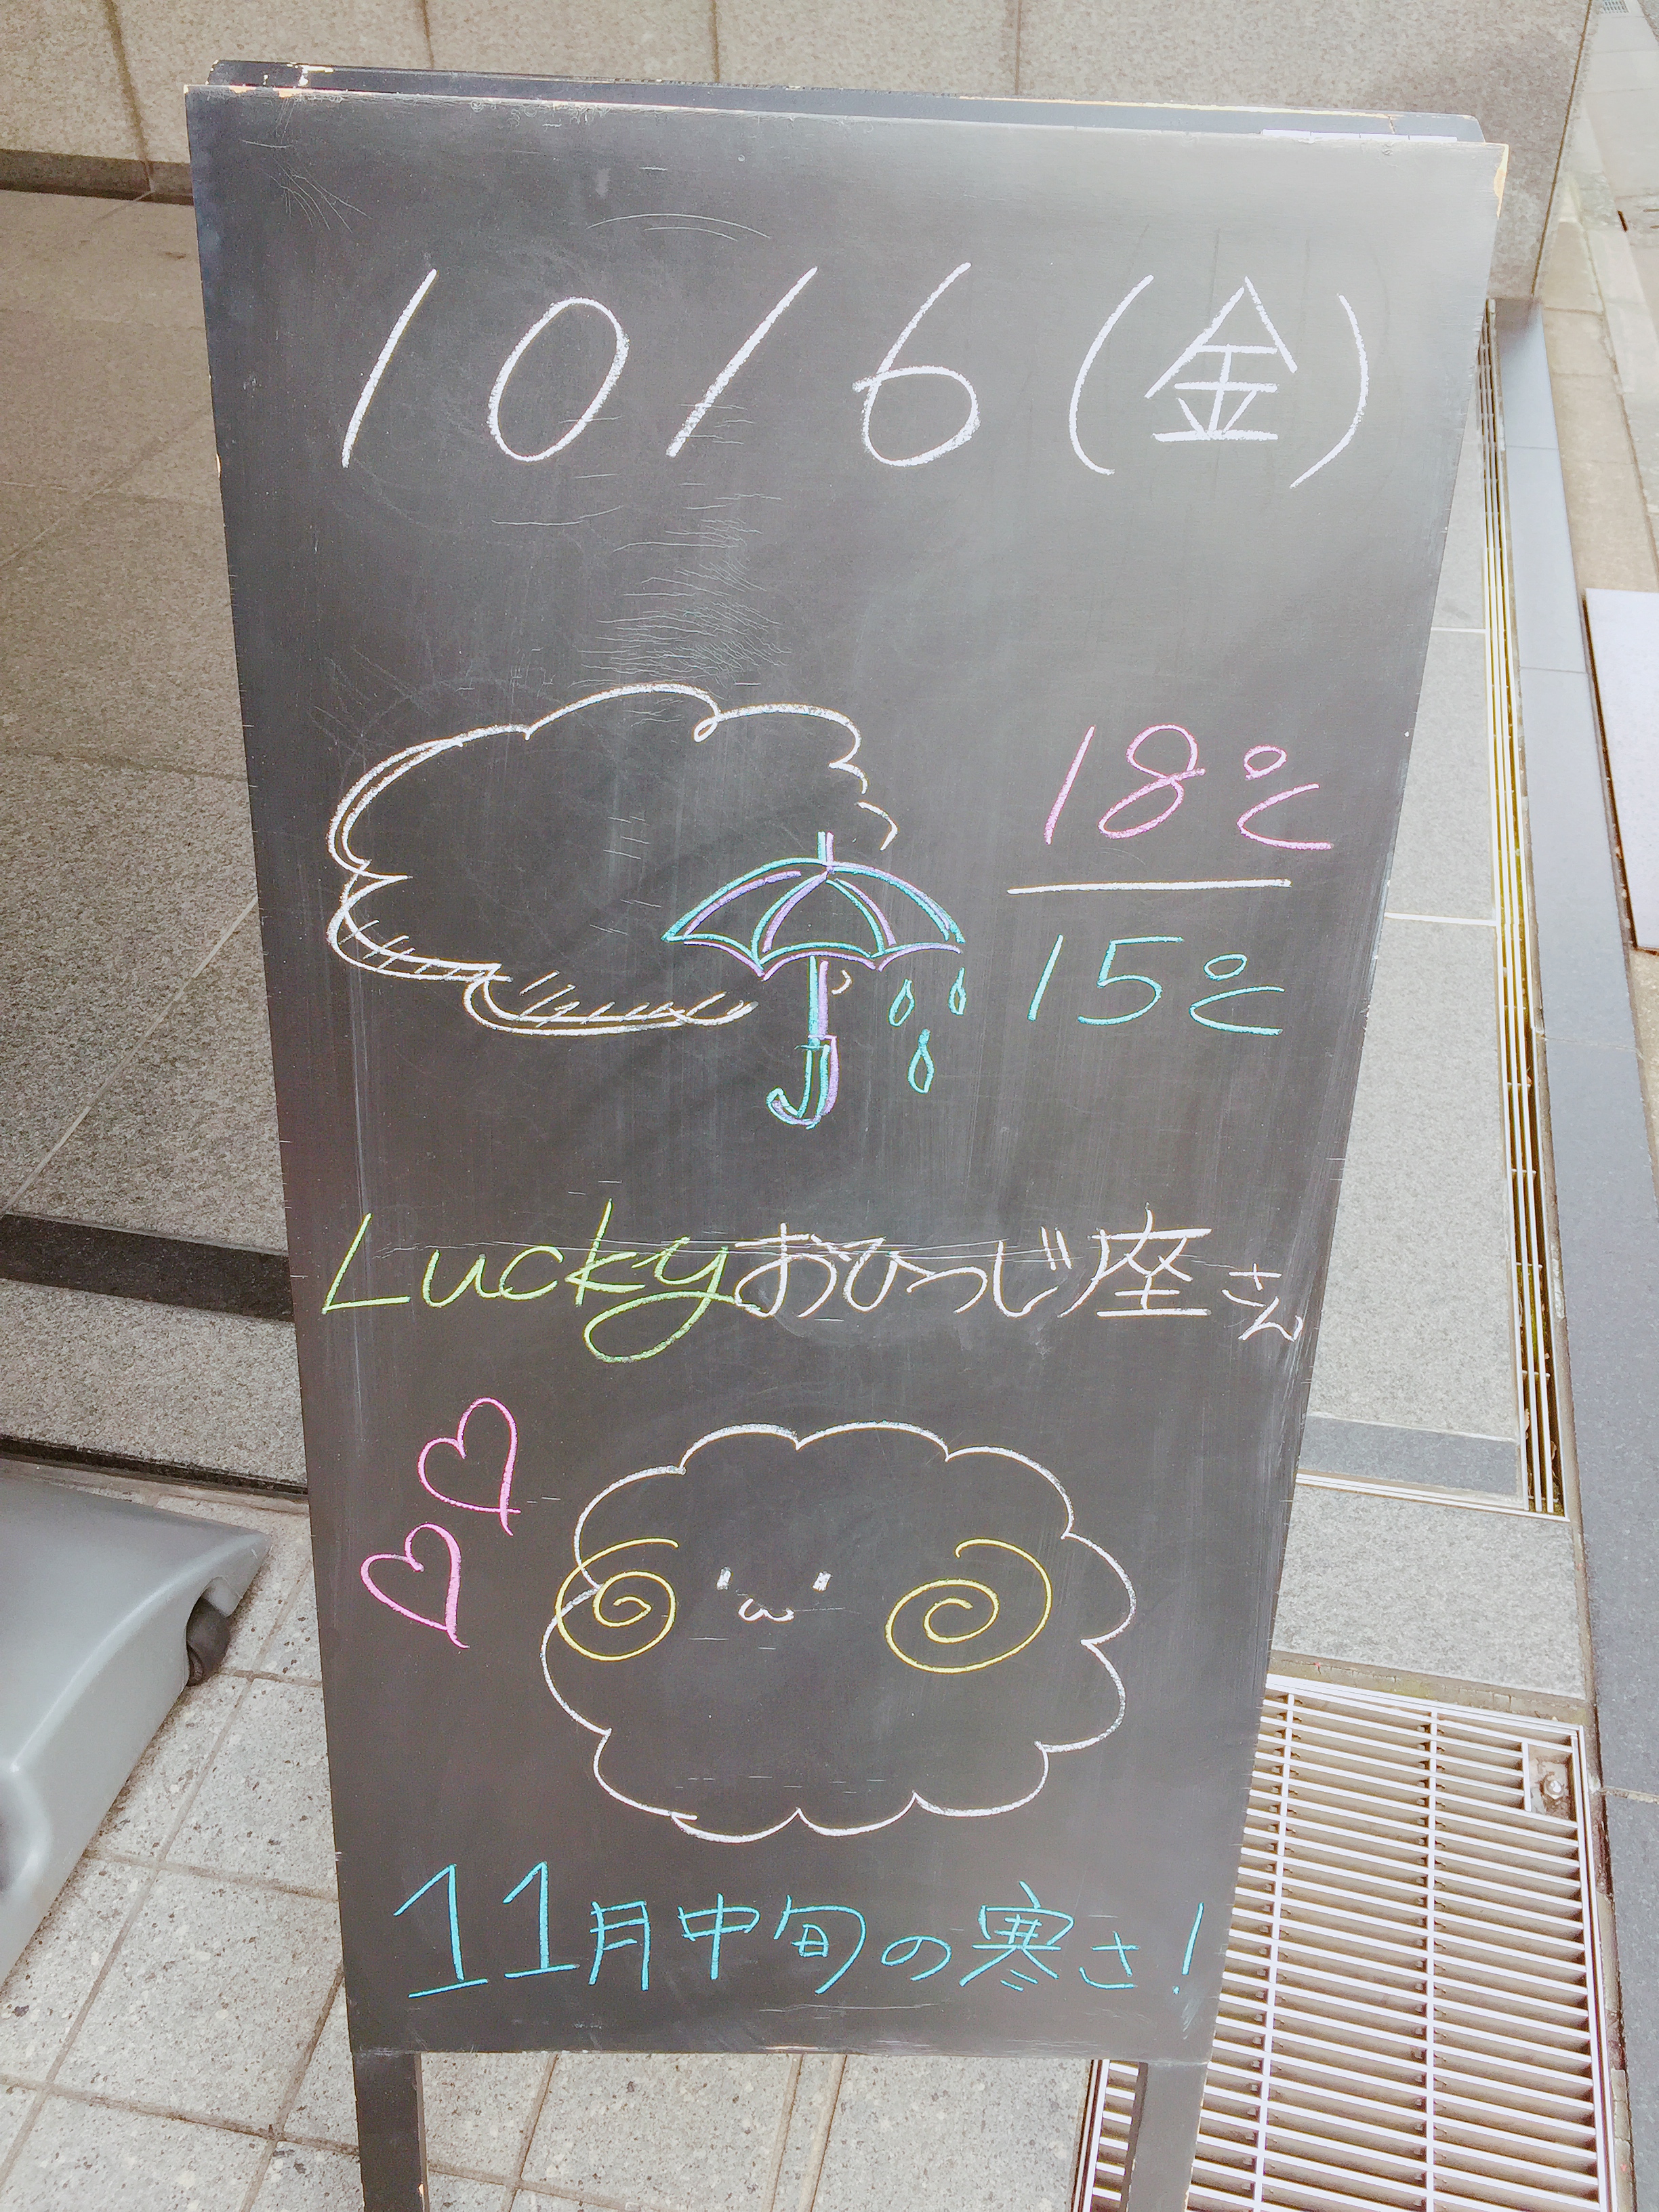 10/6(金)
18℃
15℃
Luckyおひつじ座さん
11月中旬の寒さ!